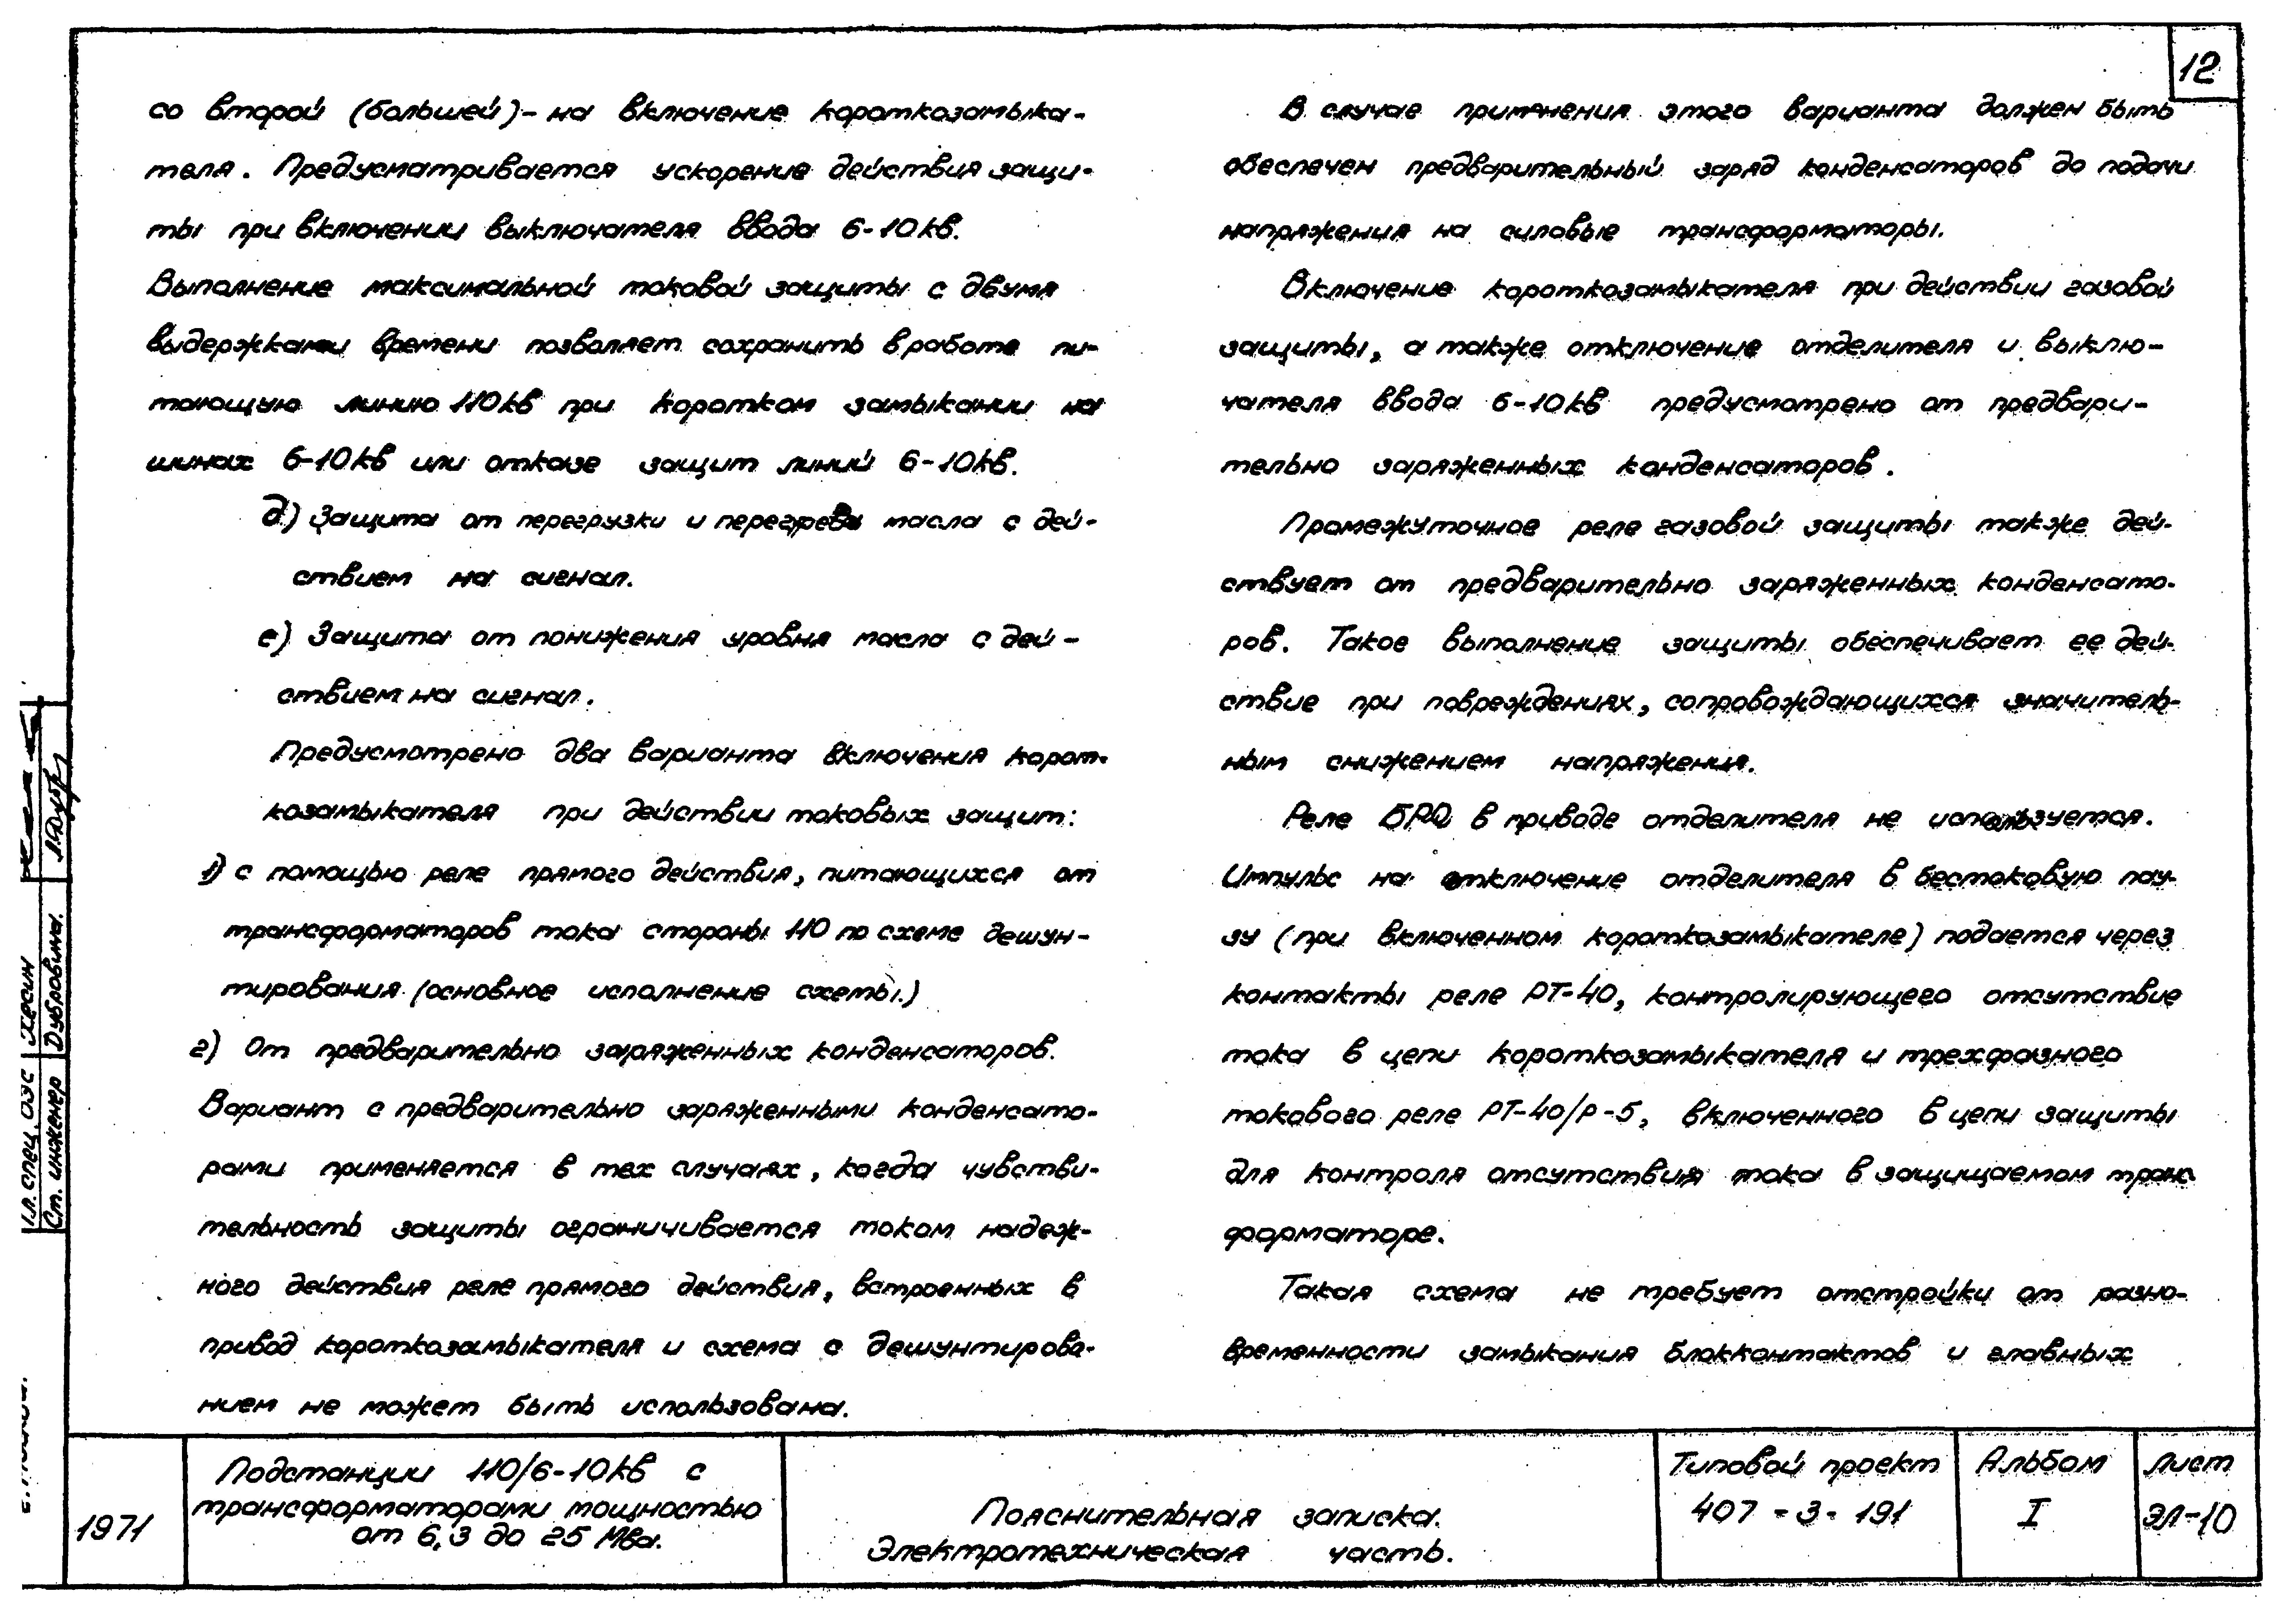 12
со второй (большей)- на включение короткозамыка-
теля. Предусматривается ускорение действия защи-
ты при включении выключателя ввода 6-10кв.
Выполнение максимальной токовой защиты с двумя
выдержками времени позволяет сохранить в работе пи-
тающую линию 110кв при коротком замыкании на
шинах 6-10кв или отказе защит линий 6-10кв.
д) Защита от перегрузки и перегрева масла с дей-
ствием на сигнал.
е) Защита от понижения уровня масла с дей-
ствием на сигнал.
Предусмотрено два варианта включения корот-
козамыкателя при действии токовых защит:
1) с помощью реле прямого действия, питающихся от
трансформаторов тока стороны 110 по схеме дешун-
тирования (основное исполнение схемы.)
2) От предварительно заряженных конденсаторов.
Вариант с предварительно заряженными конденсато-
рами применяется в тех случаях, когда чувстви-
тельность защиты ограничивается током надеж-
ного действия реле прямого действия, встроенных в
привод короткозамыкателя и схема с дешунтирова-
нием не может быть использована.
В случае применения этого варианта должен быть
обеспечен предварительный заряд конденсаторов до подачи
напряжения на силовые трансформаторы.
Включение короткозамыкателя при действии газовой
защиты, а также отключение отделителя и выклю-
чателя ввода 6-10кв предусмотрено от предвари-
тельно заряженных конденсаторов.
Промежуточное реле газовой защиты также дей-
ствует от предварительно заряженных конденсато-
ров. Такое выполнение защиты обеспечивает ее дей-
ствие при повреждениях, сопровождающихся значитель-
ным снижением напряжения.
Реле БРО в приводе отделителя не используется.
Импульс на отключение отделителя в бестоковую пау-
зу (при включенном короткозамыкателе) подается через
контакты реле РТ-40, контролирующего отсутствие
тока в цепи короткозамыкателя и трехфазного
токового реле РТ-40/Р-5, включенного в цепи защиты
для контроля отсутствия тока в защищаемом транс
форматоре.
Такая схема не требует отстройки от разно-
временности замыкания блокконтактов и главных
Гл. спец. ОЭС Хесин
Ст. инженер Дубровина.
1971
Подстанции 110/6-10кв с
трансформаторами мощностью
от 6,3 до 25 Мва.
Пояснительная записка.
Электротехническая часть.
Типовой проект
407-3-191
Альбом
I
Лист
ЭЛ-10